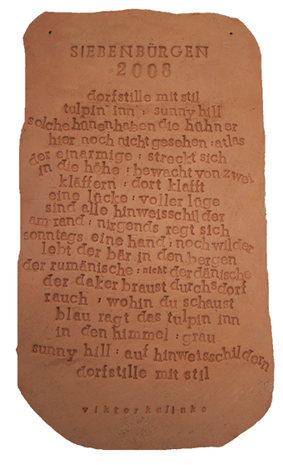 SIEBENBÜRGEN
2008
dorfstille mit stil
tulpin inn : sunny hill
solche hünen haben die hühner
hier noch nicht gesehen : atlas
der einarmige : streckt sich
in die höhe : bewacht von zwei
kläffern : dort klafft
eine lücke : voller lüge
sind alle hinweisschilder
am rand : nirgends regt sich
sonntags eine hand : noch wilder
lebt der bär in den bergen
der rumänische : nicht der dänische
der daker braust durchs dorf
rauch : wohin du schaust
blau ragt das tulpin inn
in den himmel : grau
sunny hill : auf hinweisschildern
dorfstille mit stil
viktor kalinke